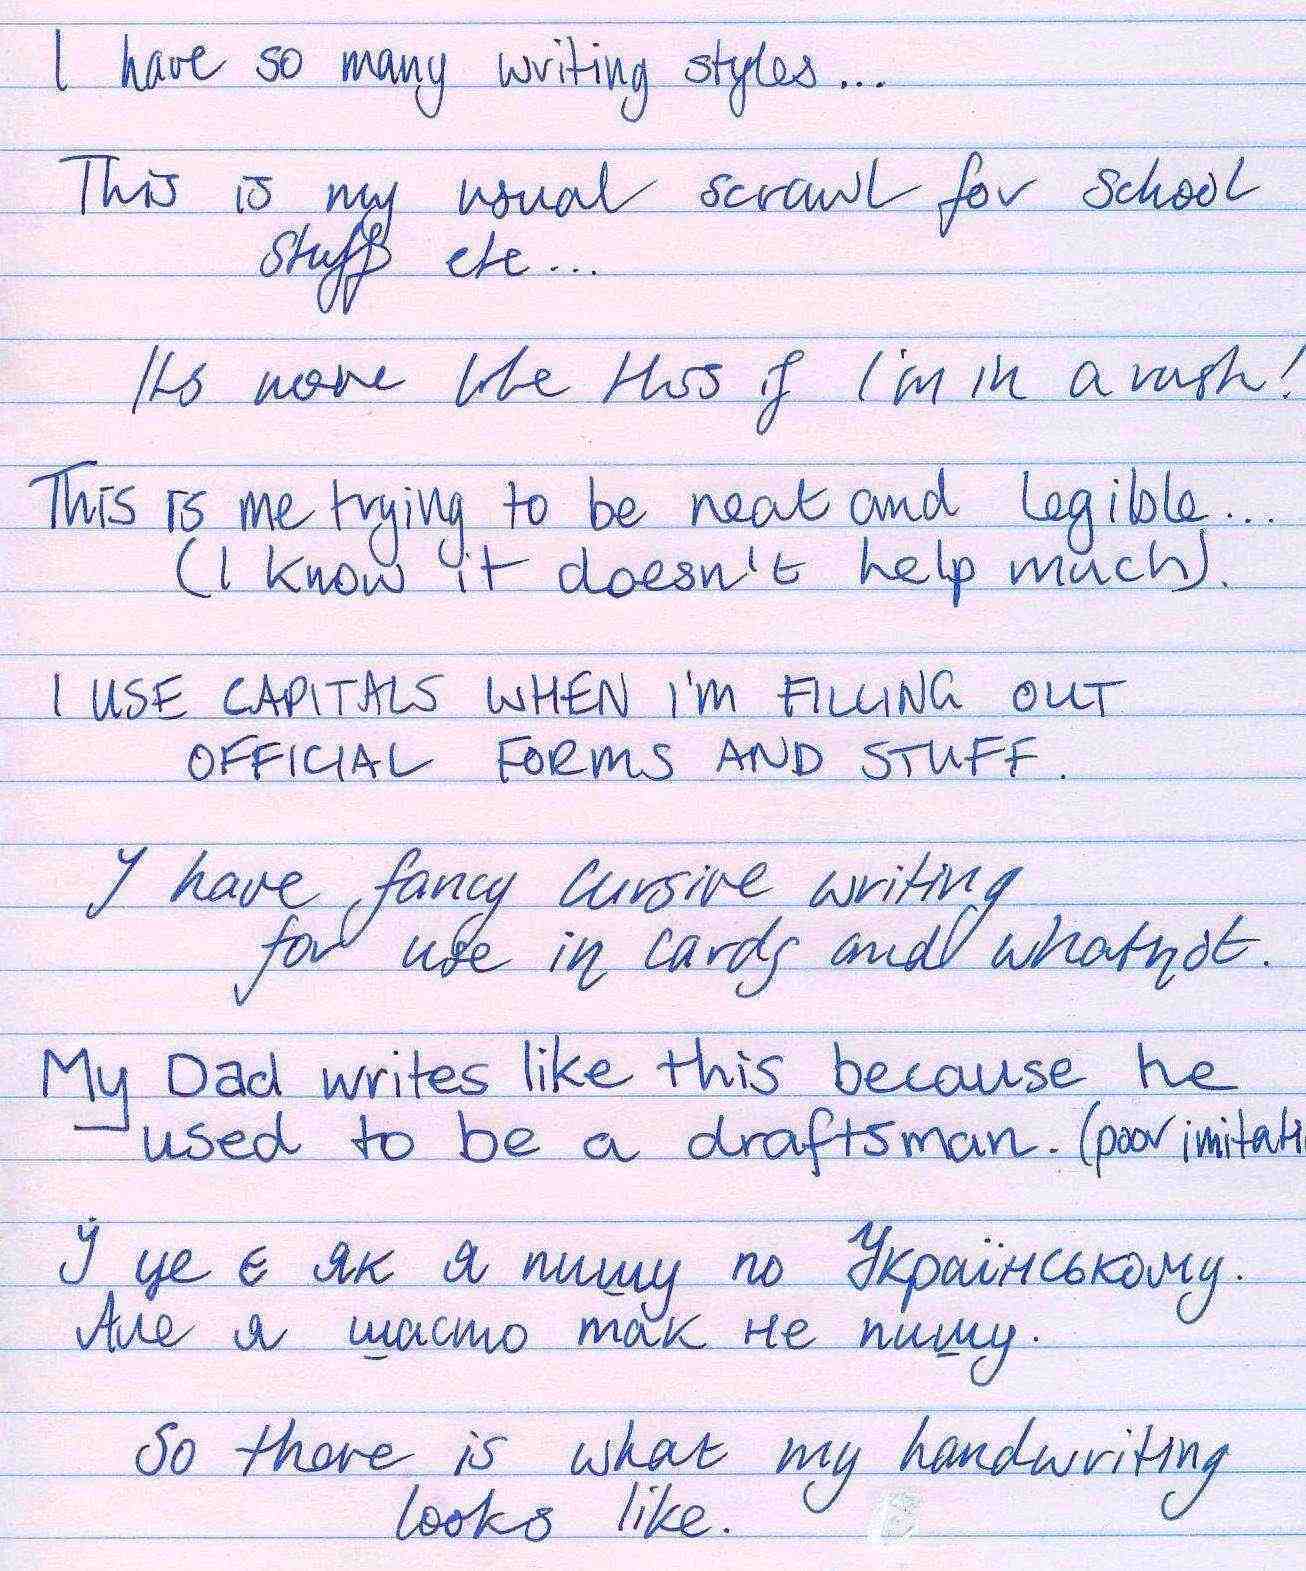 I have so many writing styles...
This is my usual scrawl for school
stuff etc...
Its more like this if I'm in a rush!
This is me trying to be neat and legible...
(I know it doesn't help much).
I USE CAPITALS WHEN I'M FILLING OUT
OFFICIAL FORMS AND STUFF.
I have fancy cursive writing
for use in cards and whatnot.
My Dad writes like this because he
used to be a draftsman. (poor imitati
Ї це є як я пишу по Українському.
Але я щасто так не пишу.
So there is what my handwriting
looks like.